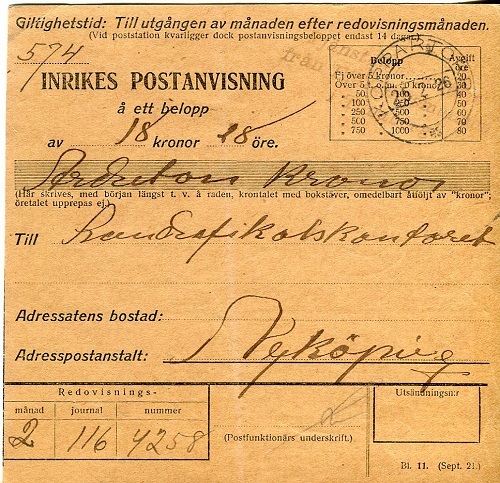 Giltighetstid: Till utgången av månaden efter redovisningsmånaden.
(Vid poststation kvarligger dock postanvisningsbeloppet endast 14 dagar.)
574
INRIKES POSTANVISNING
å ett belopp
av 18 kronor 28 öre.
Belopp Avgift öre
Ej över 5 kronor
Över 5 o. m. 50 kronor
50 100
100 250
250 500
500 750
750 1000 80
26
Aderton kronor
(Här skrives, med början längst t. v. å raden, krontalet med bokstäver, omedelbart åtföljt av "kronor";
öretalet upprepas ej.)
Till Landsfiskalskontoret
Adressatens bostad:
Adresspostanstalt: Nyköping
Redovisnings-
månad journal nummer
2 116 4258
(Postfunktionärs underskrift.)
Utsändningsn:r
Bl. 11. (Sept. 21.)